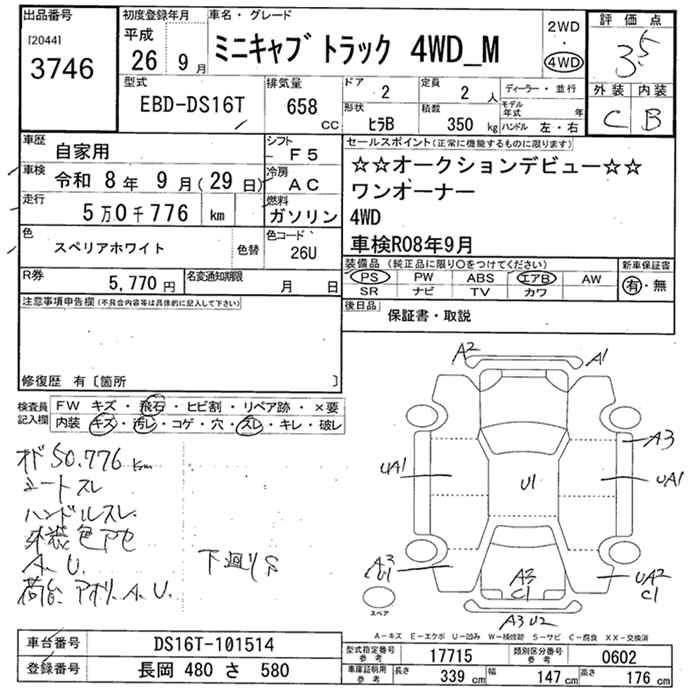 出品番号
[2044]
3746
初度登録年月
平成
26 9 月
車名・グレード
ミニキャブ トラック 4WD_M
2WD
・
4WD
評価点
3.5
外装 内装
C B
型式
EBD-DS16T
排気量
658
CC
ドア
2
定員
2 人
形状
ヒラB
積数
350 kg
ディーラー・並行
モデル年式 年
ハンドル 左・右
車歴
自家用
シフト
F5
車検
令和 8年 9月(29日)
冷房
AC
走行
5万0千776 km
燃料
ガソリン
色
スペリアホワイト
色替
色コード
26U
R券
5,770 円
名変通知期限
月 日
セールスポイント(正常に機能するものに限ります)
☆☆オークションデビュー☆☆
ワンオーナー
4WD
車検R08年9月
装備品(純正品に限り○をつけてください)
PS PW ABS エアB AW
SR ナビ TV カワ
新車保証書
有・無
後日品
保証書・取説
注意事項申告欄(不具合内容等は具体的に記入して下さい)
修復歴 有〔箇所 〕
検査員記入欄
FW キズ・飛石・ヒビ割・リペア跡・×要
内装 キズ・汚レ・コゲ・穴・スレ・キレ・破レ
オド 50.776 km
シートスレ
ハンドルスレ
外装色アセ
A. U.
下廻りS
荷台、アオリ A. U.
A2
A1
A3
UA1
U1
UA1
A3
U1
A3
C1
UA2
C1
スペア
A3 U2
A-キズ E-エクボ U-凹み W-補修跡 S-サビ C-腐食 XX-交換済
車台番号
DS16T-101514
登録番号
長岡 480 さ 580
型式指定番号
参考
17715
類別区分番号
参考
0602
車庫証明用
参考
長さ
339 cm
幅
147 cm
高さ
176 cm